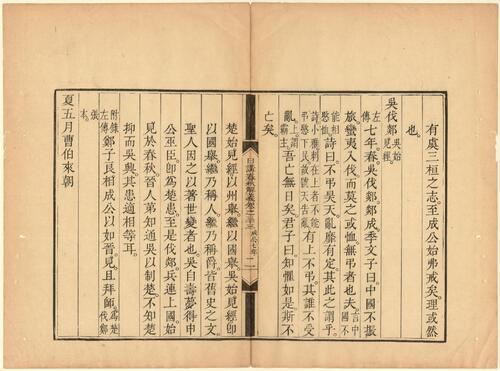 有虞三桓之志。至成公始弗戒矣。理或然
也。
吳伐郯。吳始見經。
左傳七年。春。吳伐郯。郯成。季文子曰。中國不振
旅。蠻夷入伐。而莫之或恤。無弔者也夫。言中國不
能相愍恤。詩曰。不弔昊天。亂靡有定。其此之謂乎。
詩小雅。刺在上者不能弔愍下民。故號天告亂。有上不弔。其誰不受
亂。上謂霸主。吾亡無日矣。君子曰。知懼如是。斯不
亡矣。
日講春秋解義卷之三十三 成公七年 二
楚始見經。以州舉。繼以國舉。吳始見經。卽
以國舉。繼乃稱人。繼乃稱爵。皆舊史之文。
聖人因之以著世變者也。吳自壽夢得申
公巫臣。卽為楚患。至是伐郯。兵連上國。始
見於春秋。晉人第知通吳以制楚。不知楚
抑而吳興。其患適相等耳。
附錄左傳鄭子良相成公以如晉。見且拜師。為楚伐鄭
張本。
夏。五月。曹伯來朝。